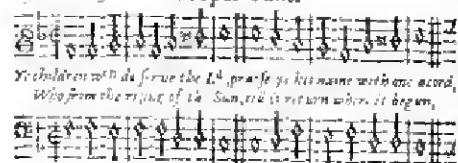 Ye children wch do serve the Ld, praise ye his name with one acord,
Who from the rising of the Sun, till it return where it began,